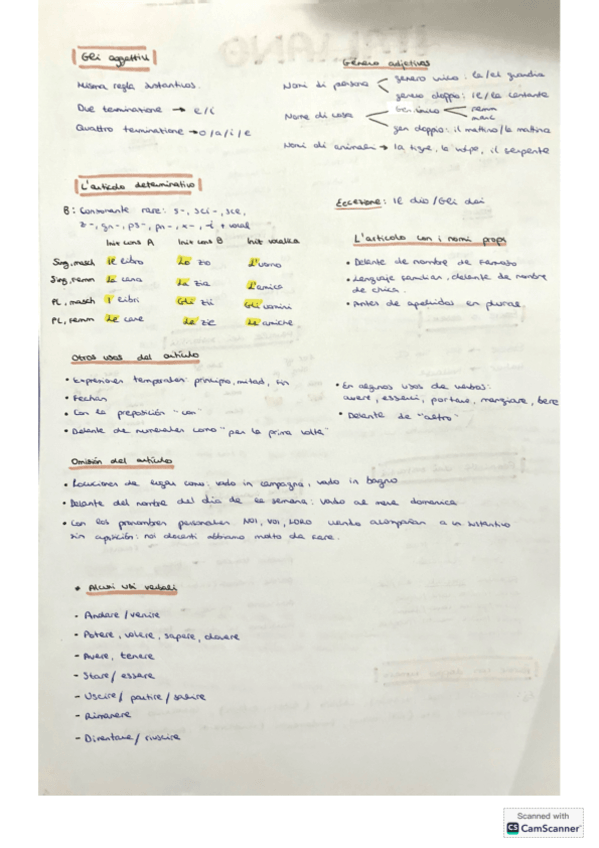 Gli aggettivi
Misma regla sustantivos.
Due terminatione → e/i
Quattro terminatione → o/a/i/e
Genero adjetivos
Nomi di persona
genero unico: la/el guardia
genero doppio: il/la cantante
Nome di cosa
Gen. unico
femm
masc
gen doppio: il mattino/la mattina
Nomi di animali → la tigre, la volpe, il serpente
L'articolo determinativo
B: Consonante rare: s-, sci-, sce,
z-, gn-, ps-, pn-, x-, -i + vocal
Init cons A Init cons B Init vocalica
Sing, masch Il libro Lo zio L'uomo
Sing, femm La casa La zia L'amica
PL, masch I libri Gli zii Gli uomini
PL, femm Le case Le zie Le amiche
Eccezione: Il dio/Gli dei
L'articolo con i nomi props
• Delante de nombre de famoso
• Lenguaje familiar, delante de nombre
de chica.
• Antes de apellidos en plural
Otros usos del articulo
• Expresiones temporales: principio, mitad, fin
• Fechas
• Con la preposición "con"
• Delante de numerales como "per la prima volta"
• En algunos usos de verbos:
avere, esserci, portare, mangiare, bere
• Delante de "altro"
Omisión del articulo
• Locuciones de lugar como: vado in campagna, vado in bagno
• Delante del nombre del día de la semana: vado al mare domenica.
• Con los pronombres personales NOI, VOI, LORO cuando acompañan a un sustantivo
sin aposición: noi docenti abbiamo molto da fare.
* Alcuni usi verbali
- Andare/venire
- Potere, volere, sapere, dovere
- Avere, tenere
- Stare/essere
- Uscire/partire/salire
- Rimanere
- Diventare/riuscire
Scanned with
CS CamScanner